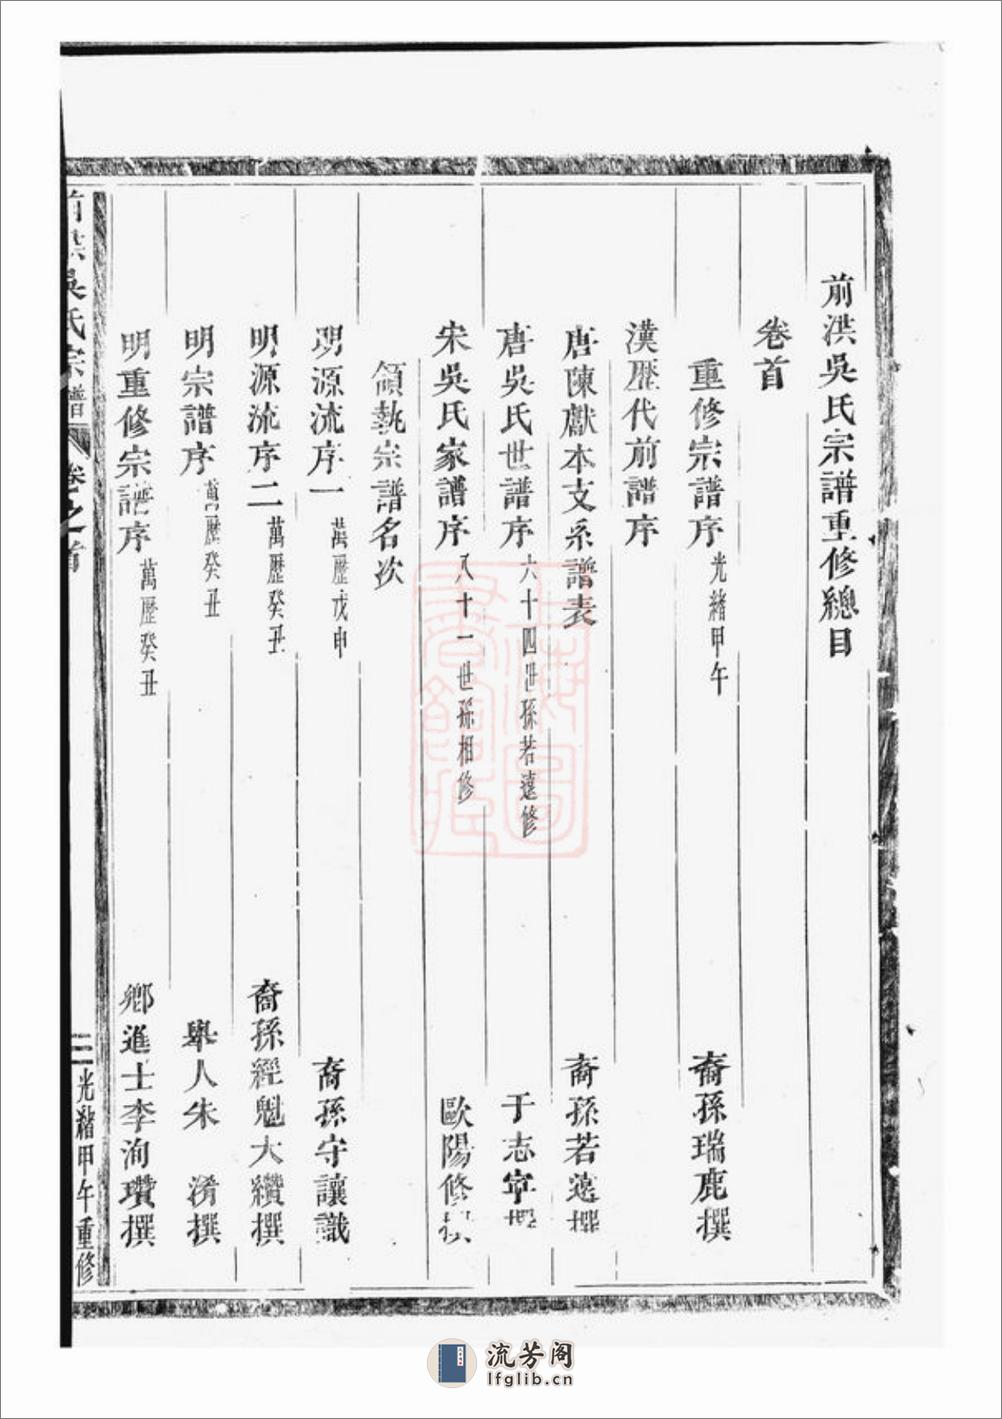 前洪吳氏宗譜重修總目
卷首
重修宗譜序 光緒甲午 裔孫瑞鹿撰
漢歷代前譜序
唐陳獻本支系譜表 裔孫若遠撰
唐吳氏世譜序 六十四世孫若遠修 于志寧撰
宋吳氏家譜序 八十一世孫相修 歐陽修撰
領執宗譜名次
明源流序一 萬歷戊申 裔孫守讓識
明源流序二 萬歷癸丑 裔孫經魁大纘撰
明宗譜序 萬歷癸丑 舉人朱 淆撰
明重修宗譜序 萬歷癸丑 鄉進士李洵瓚撰
前洪吳氏宗譜 卷之首 三 光緒甲午重修
上海圖書館藏
流芳阁
lfglib.cn